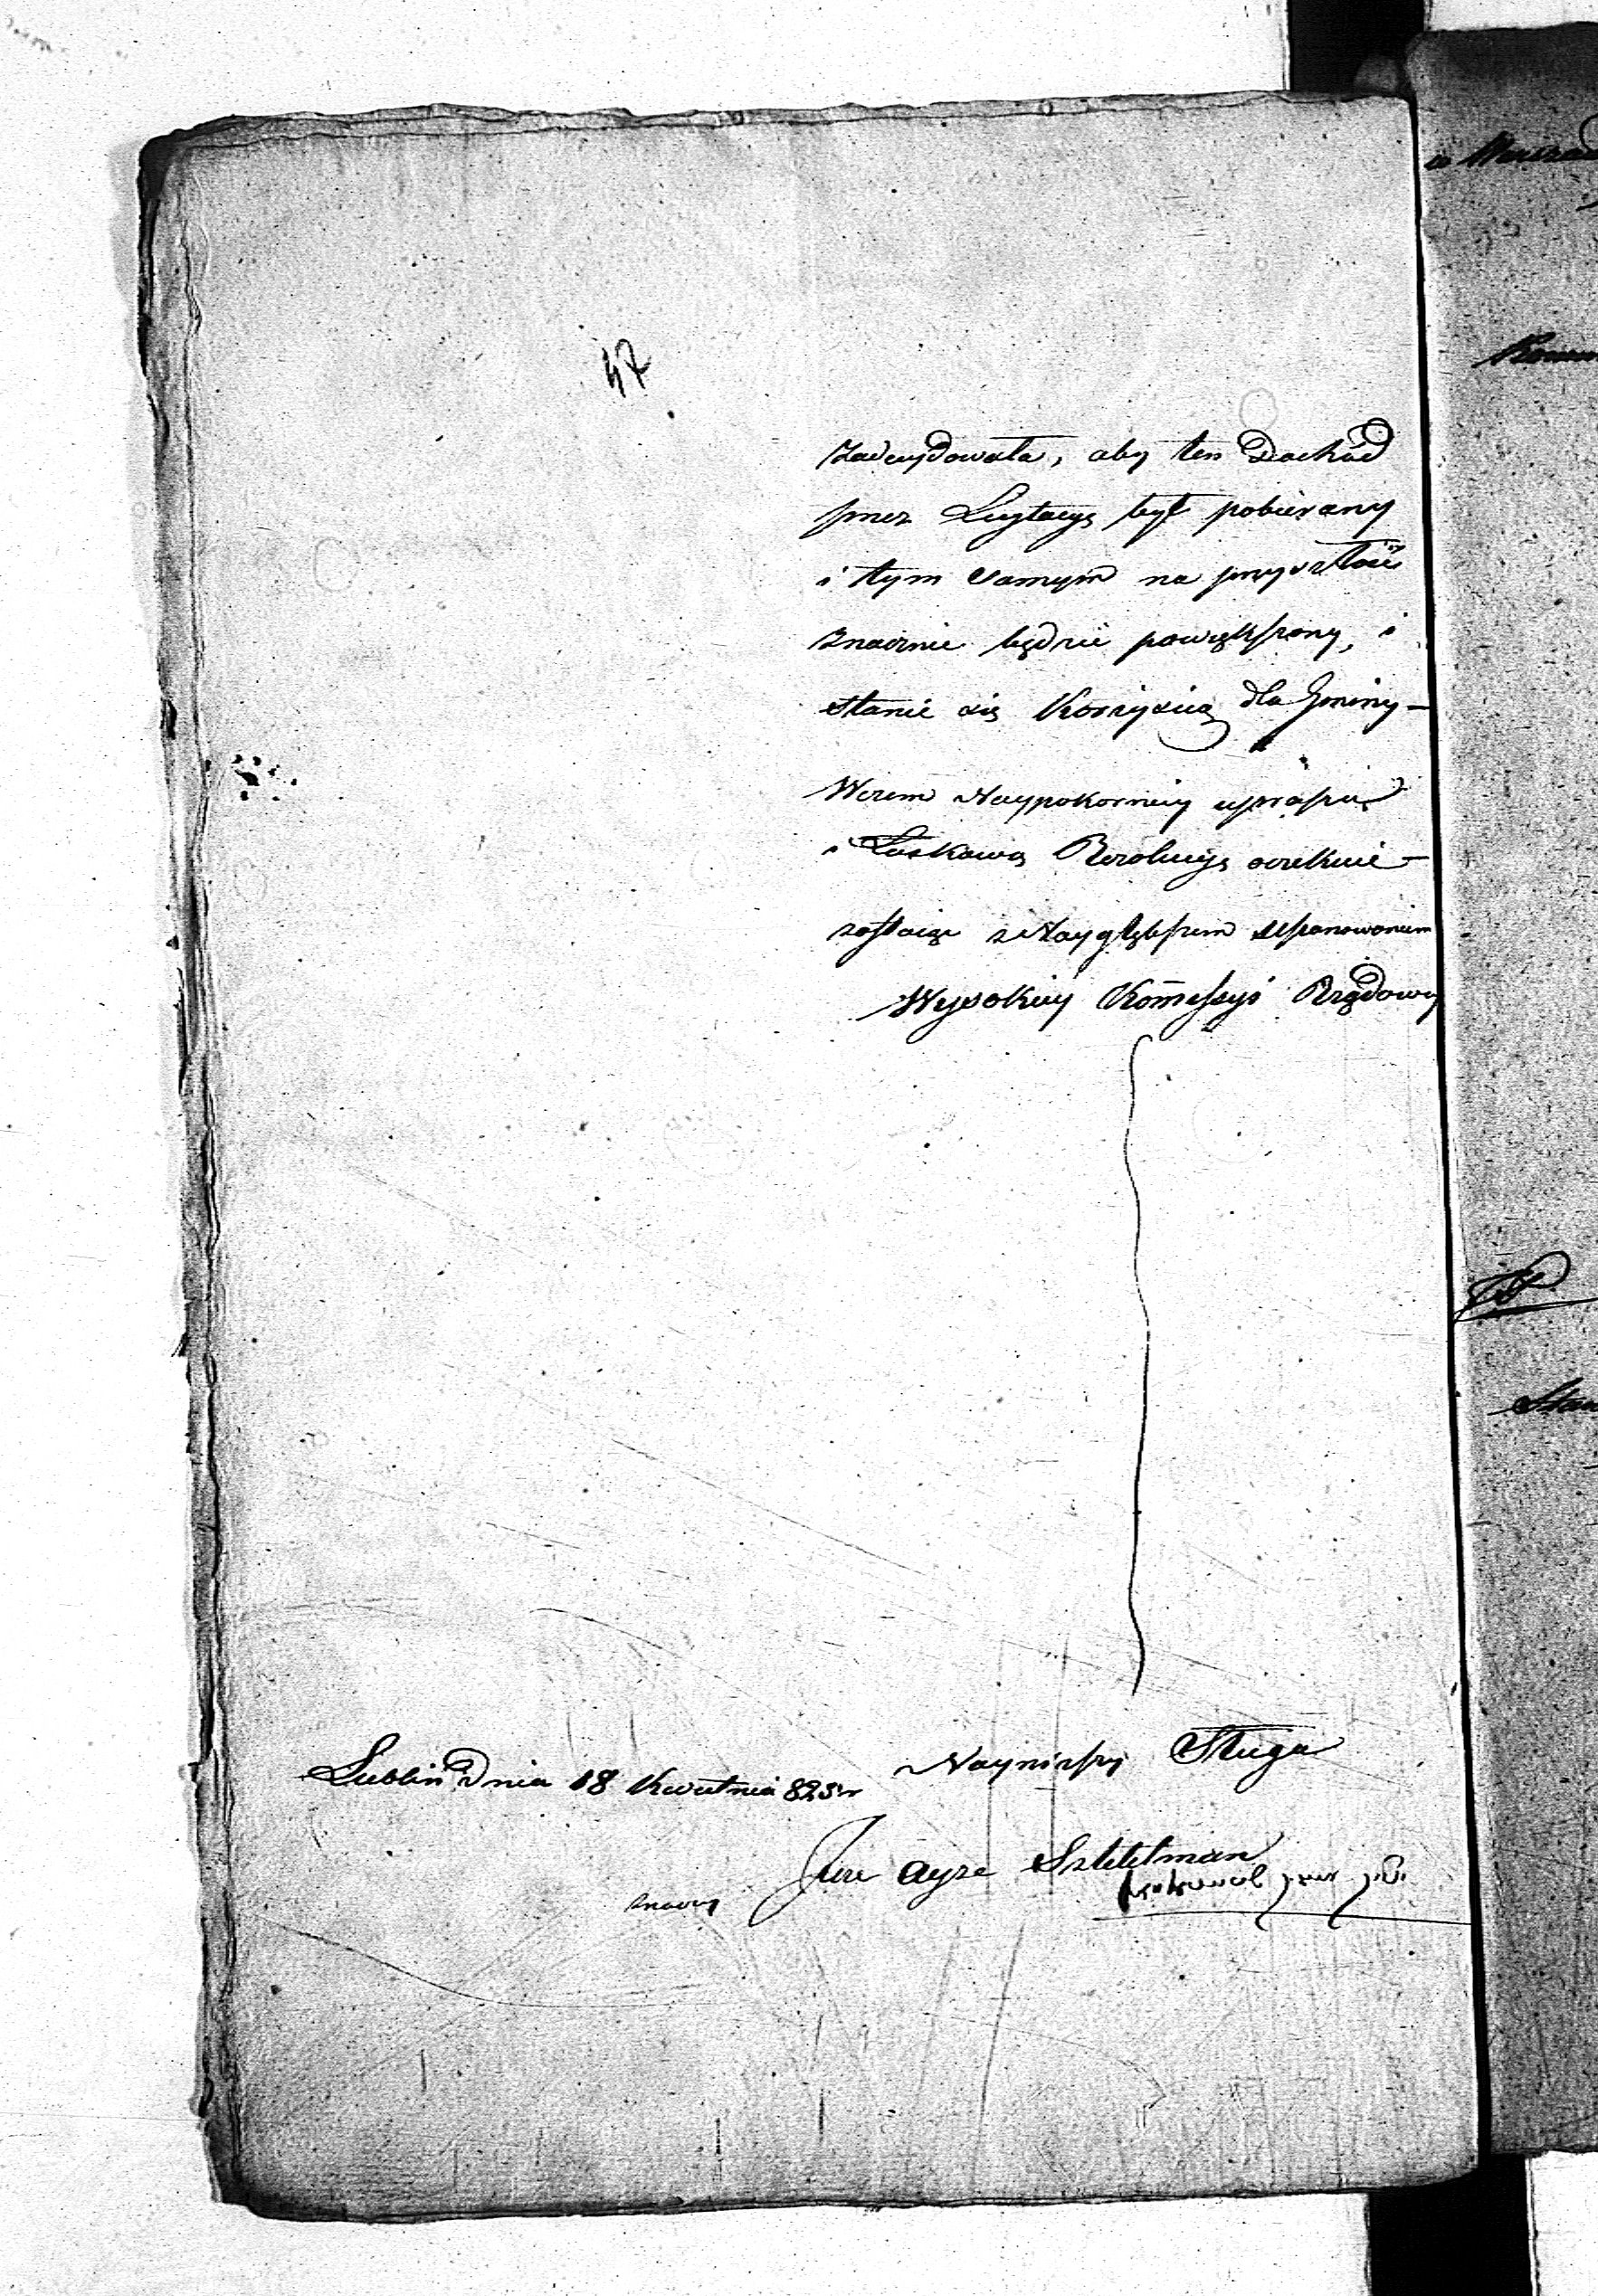 47
zadecydowała, aby ten Dochód
przez Licytacyę był pobierany
i tym samym na przyszłość
znacznie będzie powiększony, i
stanie się Korzyścią dla Gminy –
Wczem Naypokorniey uprasza
i Łaskawą Rezolucyę oczekuie –
zostaiąc z Naygłębszem uszanowaniem
Wysokiey Kom̄issyi Rządowey
Nayniższy Sługa
Lublin dnia 18 Kwietnia 825 r
Szlitelman